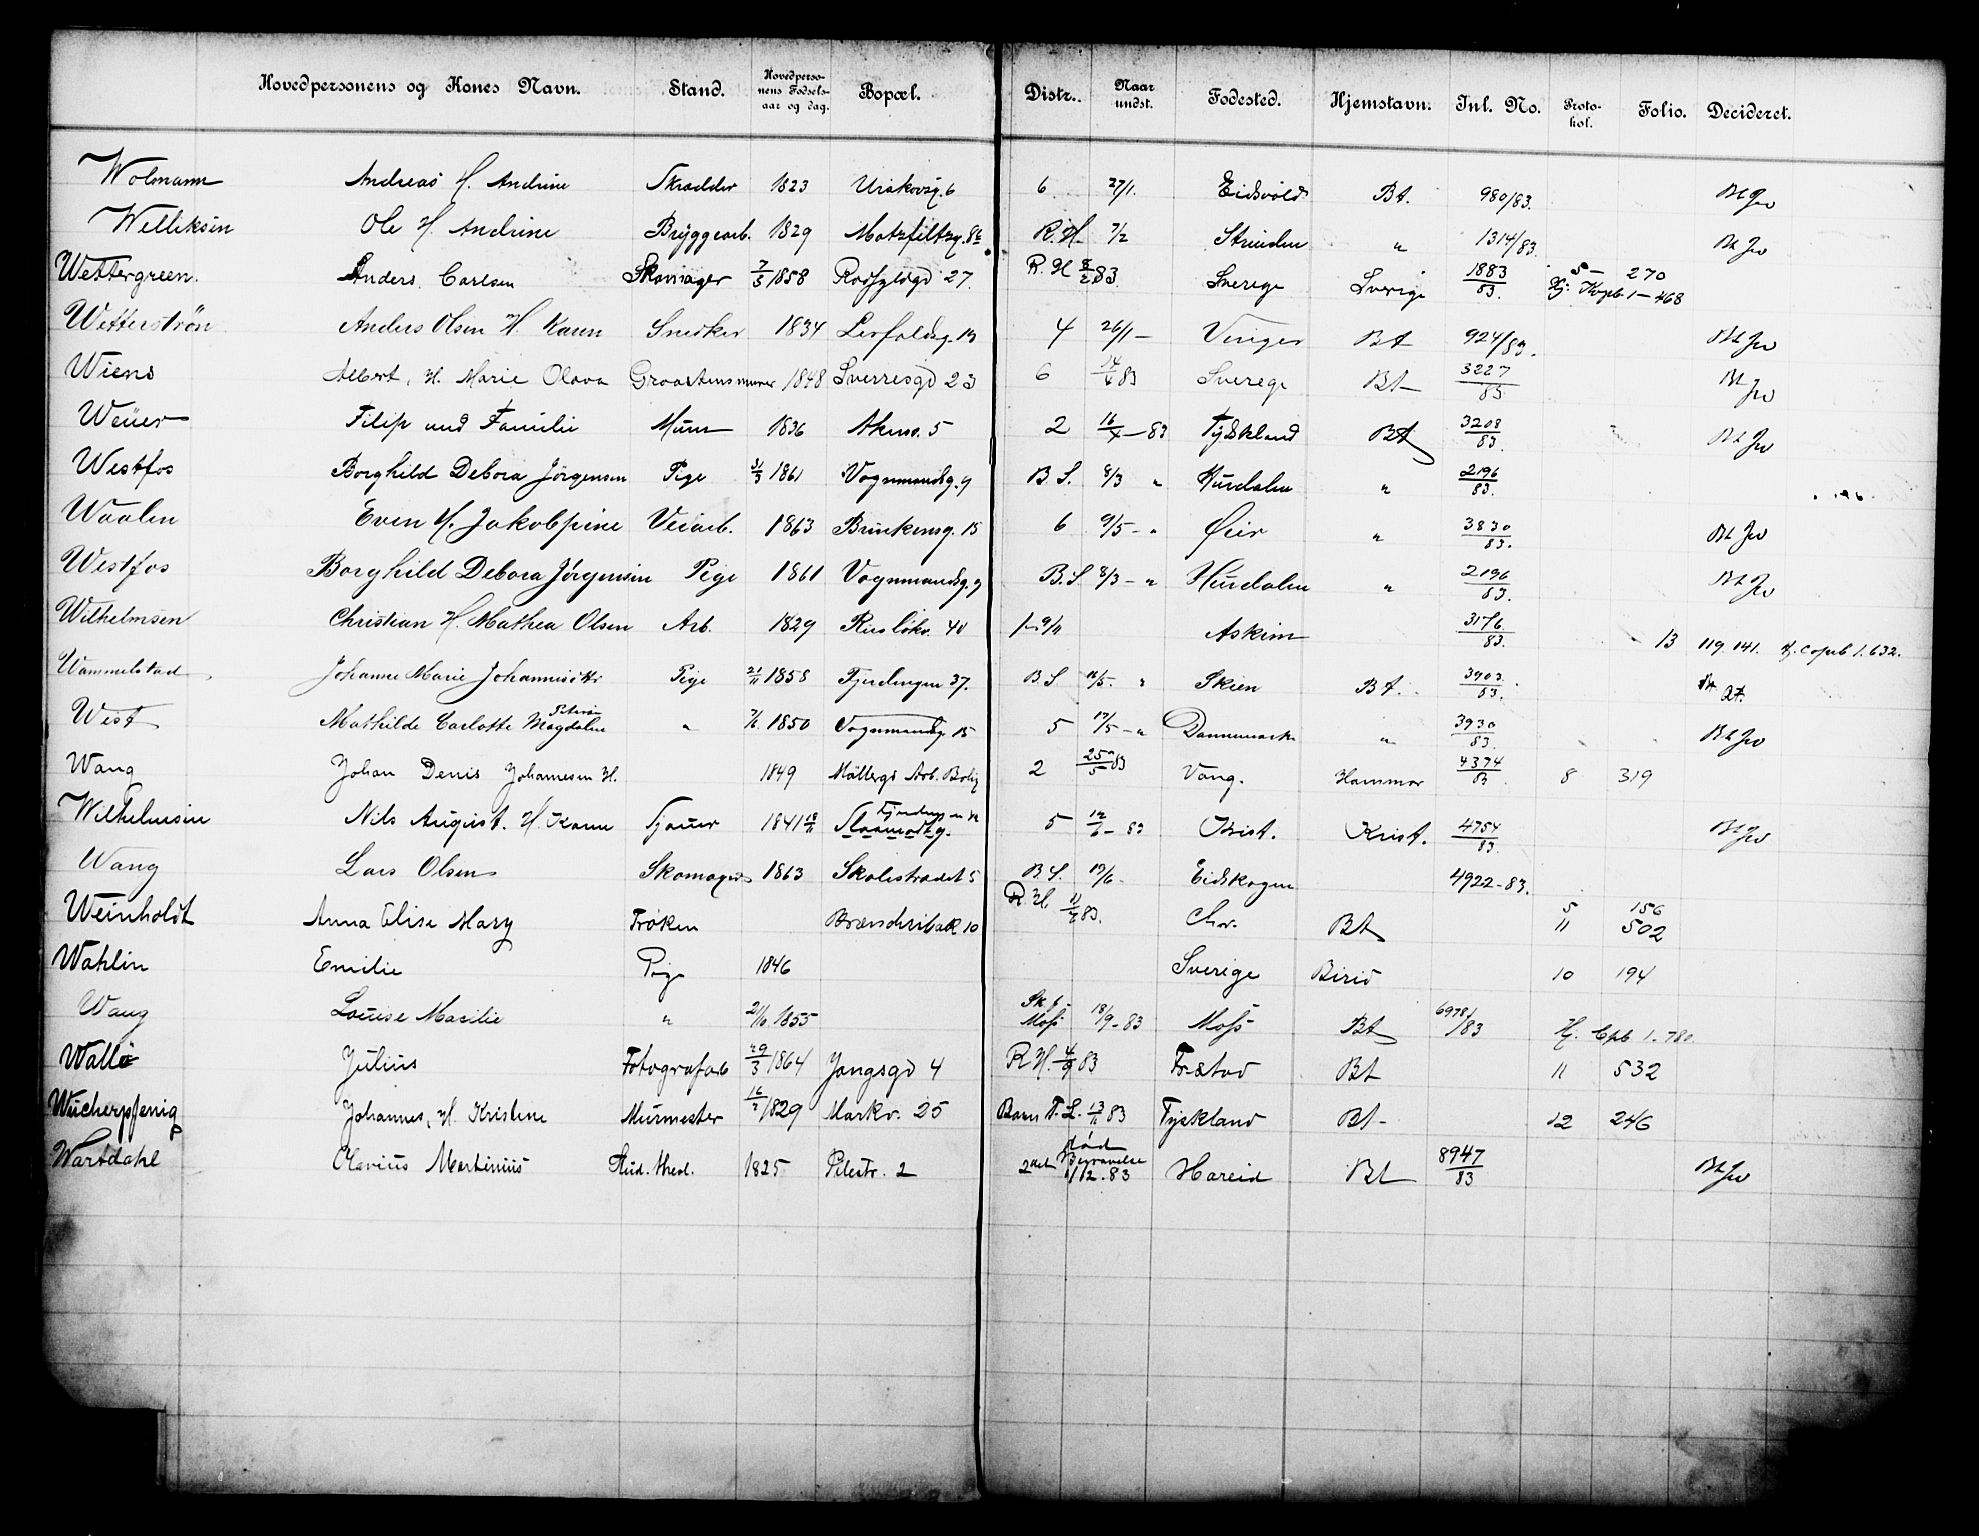 Hovedpersonens og Kones Navn. Stand. Hovedpersonens Fødselsaar og dag. Bopæl. Distr. Naar undst. Fødested. Hjemstavn. Inl. No. Protokol. Folio. Decideret.
Wolmann Andreas H. Andrine Skrædder 1823 6 27/1. Eidsvold Bt. 980/83.
Welliksen Ole H. Andrine Bryggearb. 1829 R.H. 7/2 Strinden " 1314/83.
Wettergreen. Anders Carlsen Skomager 7/5 1858 27. R.H 8/2 83. Sverige Sverige 1883/83. 5 - 270 Hj: Kopb. 1 - 468
Wetterström Anders Olsen H. Karen Snedker 1834 4 26/1 - Vinger Bt 924/83.
Wiens Albert, H. Marie Olava Graastensmurer 1848 Sverresgd 23 6 14/4 83 Sverege Bt 3227/83
Weuer Filip und Familie Murer 1836 Akersv. 5 2 16/4 - 83 Tydskland Bt 3208/83.
Westfos Borghild Debora Jörgensen Pige 31/3 1861 Vognmandsg. 9 B.S. 8/3 " Hurdalen " 2196/83.
Waalen Even H. Jakobpine Veiarb. 1863 Brinkensg. 15 6 9/5 - " Øier " 3830/83.
Westfos Borghild Debora Jørgensen Pige 1861 Vognmandsg. 9 B.S 8/3 - " Hurdalen " 2196/83.
Wilhelmsen Christian H. Mathea Olsen Arb. 1829 40 1 - 9/4 Askim 3176/83. 13 119. 141. Hj. Copeb 1. 632.
Wammelstad Johanne Marie Pige 21/11 1858 Fjerdingen 37. B.S 12/5. " Skien Bt. 3903/83.
West Mathilde Carlotte Magdalen Petersen " 7/6 1850 Vognmandsg. 15 5 12/5 - " Dannemark " 3930/83.
Wang Johan Denis Johannesen H. 1849 Möllergs Arb. Bolig 2 25/5 83 Vang. Hammar 4374/83 8 319
Wilhelmsen Nils August. H. Karen Tjener 1841 5 12/6 - 83 Krist. Krist. 4754/83.
Wang Lars Olsen Skomager 1863 Skolestrædet 5 B.S. 19/6 - Eidskogen 4922 - 83.
Weinholdt Anna Elise Mary Frøken 10 R.H. 11/7 83. Chr. Bt 5 156 11 502
Wahlin Emilie Pige 1846 Sverige Birid 10 194
Wang Louise Maselie " 2/10 1855 Moss 18/9 - 83 Moss Bt 6978/83 Hj. Cpb 1. 780
Wallé Julius Fotografarb 29/3 1864 Jongsgd 4 R.H. 4/9 83 Bt 11 532
Wucherpfenig Johannes, H. Kristine Murmester 16/2 1829 Markv. 25 Barn F. L. 13/11 83 Tyskland Bt - 12 246
Wartdahl Olavius Martinius Stud. theol. 1825 Pilestr. 2 2det død Begravelse 1/12. 83 Hareid Bt 8947/83